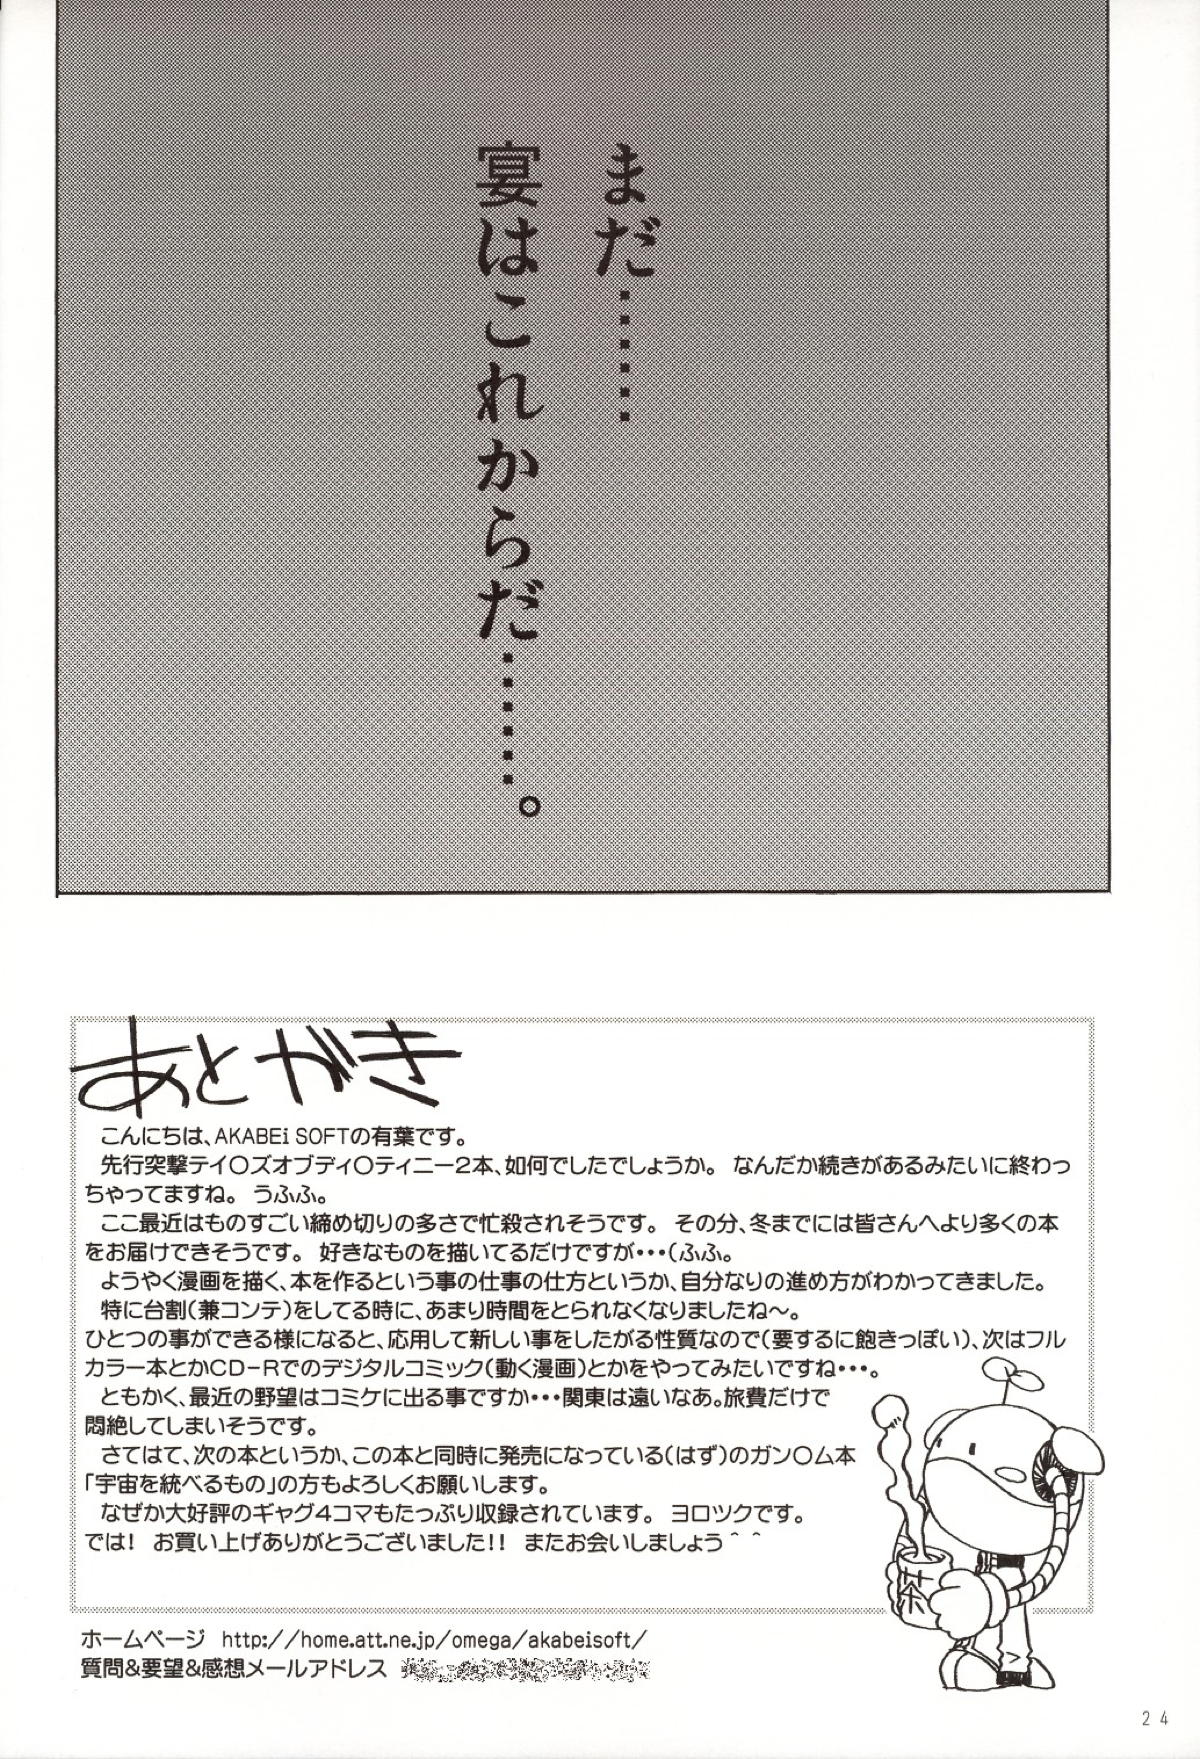 まだ……
宴はこれからだ……。
あとがき
こんにちは、AKABEi SOFTの有葉です。
先行突撃テイ○ズオブディ○ティニー2本、如何でしたでしょうか。 なんだか続きがあるみたいに終わっ
ちゃってますね。 うふふ。
ここ最近はものすごい締め切りの多さで忙殺されそうです。 その分、冬までには皆さんへより多くの本
をお届けできそうです。 好きなものを描いてるだけですが・・・(ふふ。
ようやく漫画を描く、本を作るという事の仕事の仕方というか、自分なりの進め方がわかってきました。
特に台割(兼コンテ)をしてる時に、あまり時間をとられなくなりましたね〜。
ひとつの事ができる様になると、応用して新しい事をしたがる性質なので(要するに飽きっぽい)、次はフル
カラー本とかCD-Rでのデジタルコミック(動く漫画)とかをやってみたいですね・・・。
ともかく、最近の野望はコミケに出る事ですか・・・関東は遠いなあ。旅費だけで
悶絶してしまいそうです。
さてはて、次の本というか、この本と同時に発売になっている(はず)のガン○ム本
「宇宙を統べるもの」の方もよろしくお願いします。
なぜか大好評のギャグ4コマもたっぷり収録されています。 ヨロツクです。
では! お買い上げありがとうございました!! またお会いしましょう＾＾
茶
ホームページ http://home.att.ne.jp/omega/akabeisoft/
質問&要望&感想メールアドレス
24